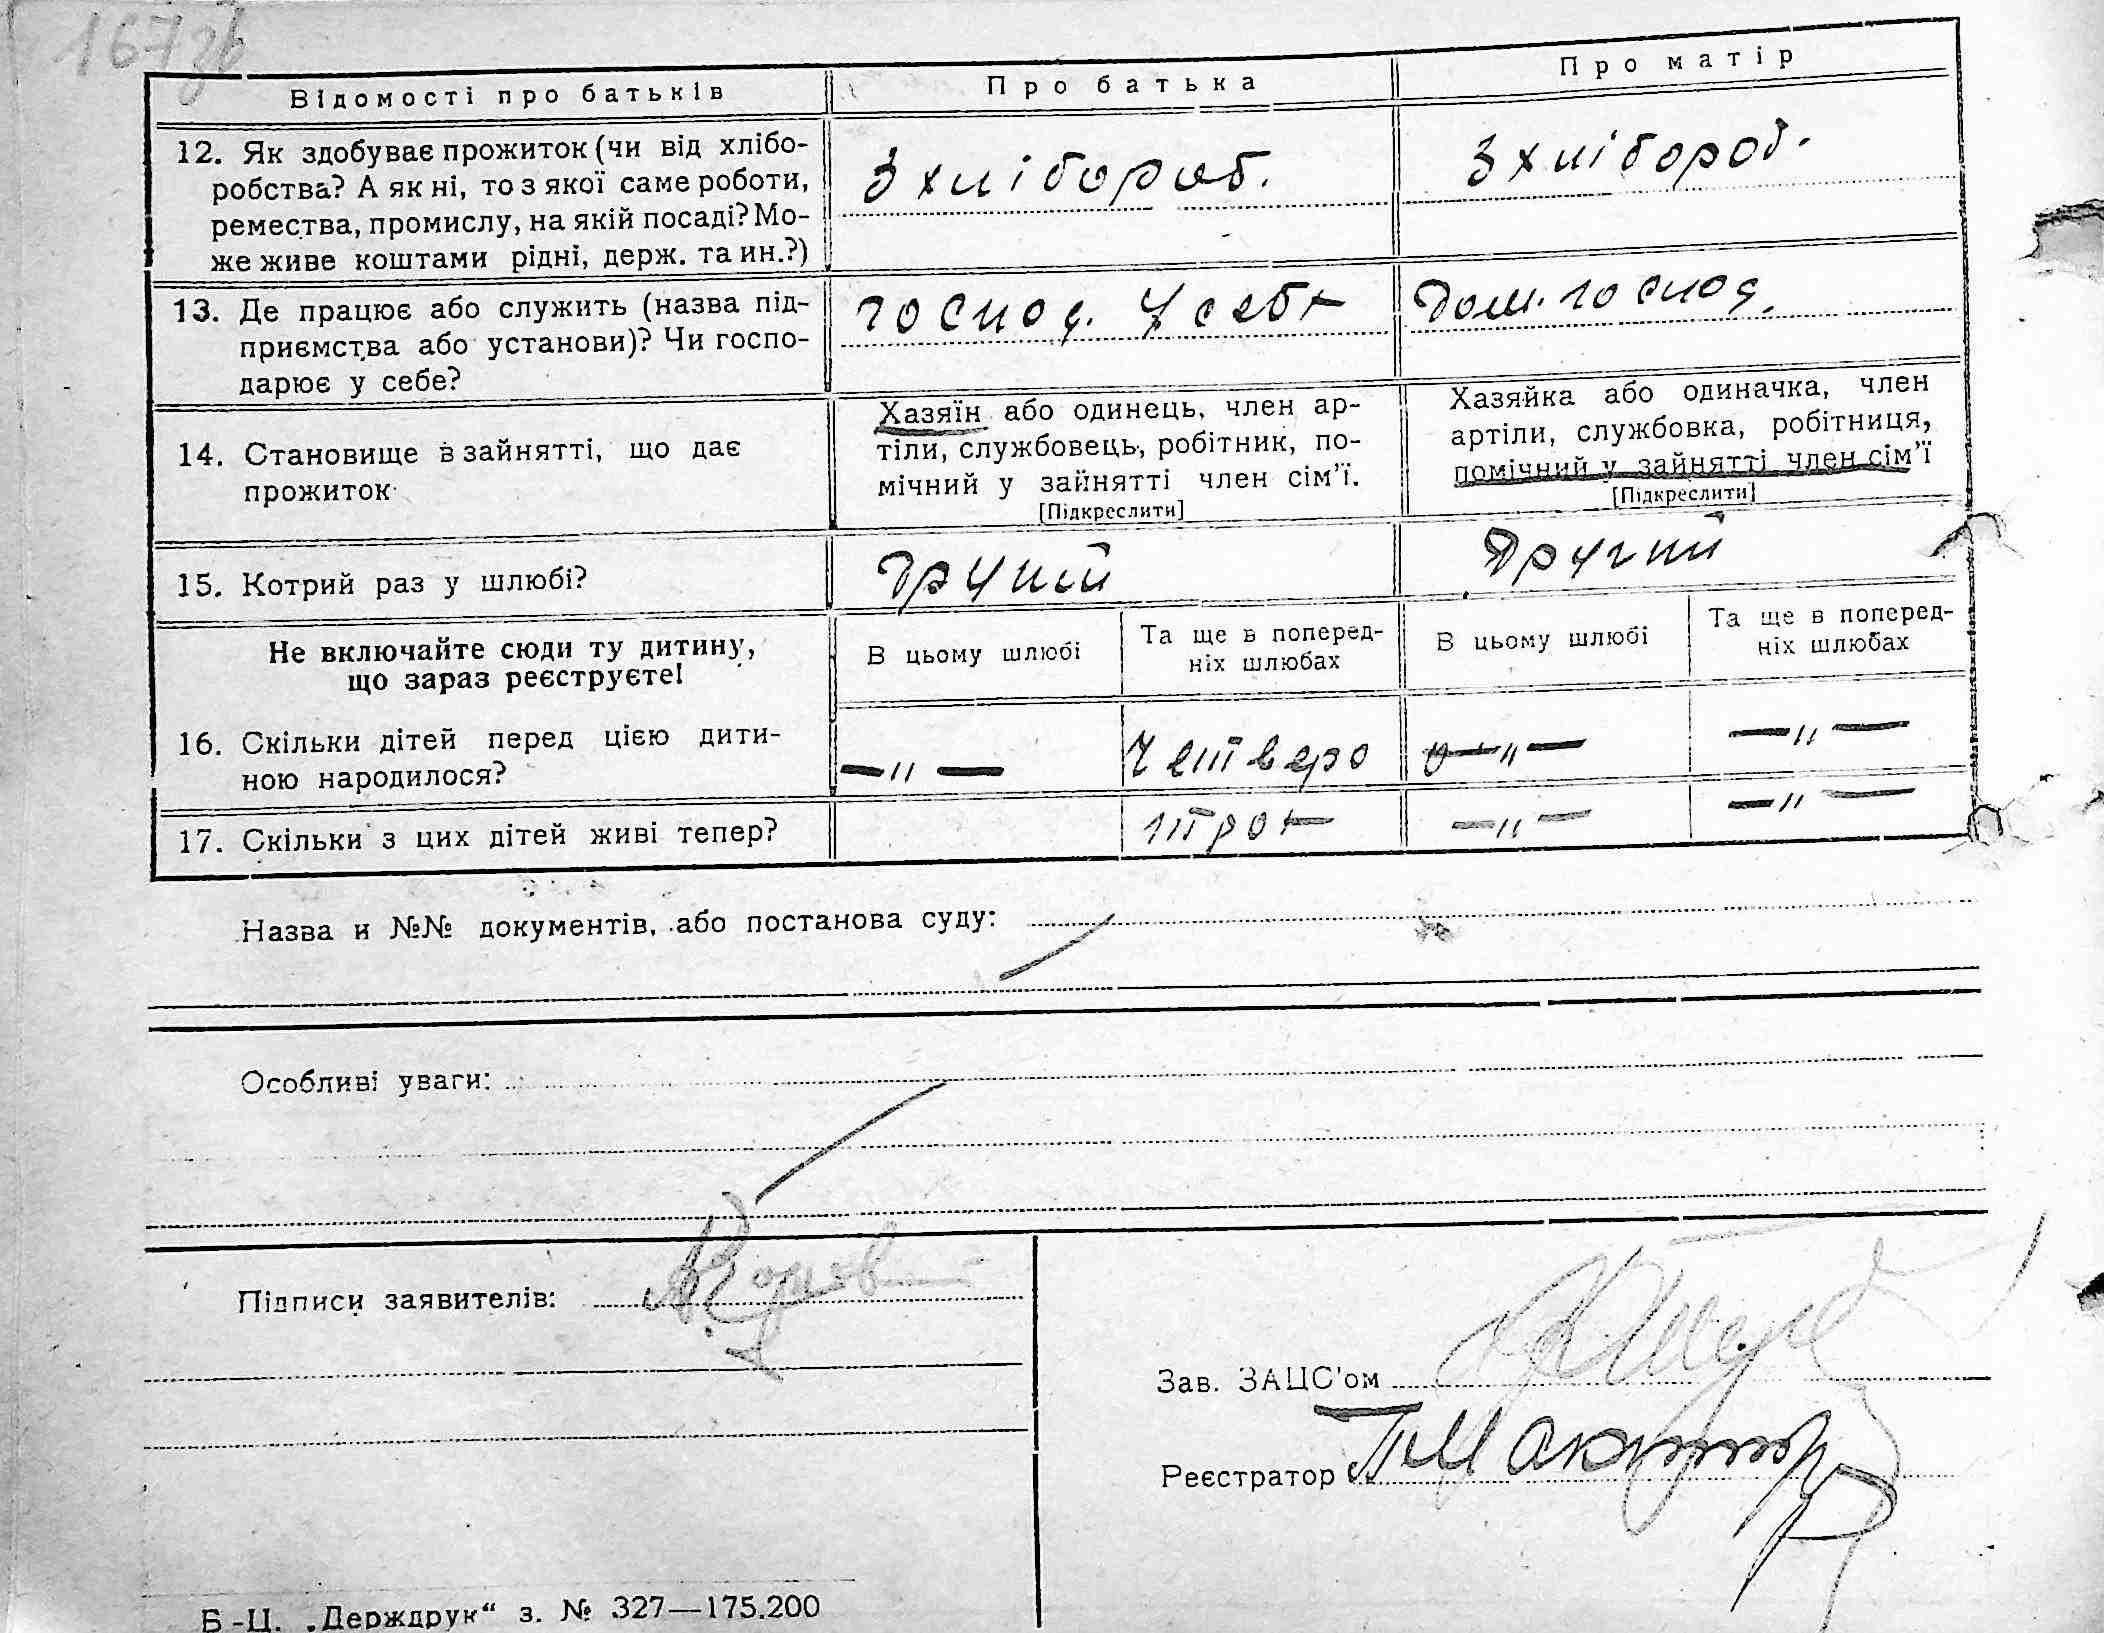 167зв
Відомості про батьків
Про батька
Про матір
12. Як здобуває прожиток (чи від хлібо-
робства? А як ні, то з якої саме роботи,
ремества, промислу, на якій посаді? Мо-
же живе коштами рідні, держ. та ин.?)
З хлібороб.
З хлібороб.
13. Де працює або служить (назва під-
приємства або установи)? Чи госпо-
дарює у себе?
господ. У себе
Дом. господ.
14. Становище в зайнятті, що дає
прожиток
Хазяїн або одинець, член ар-
тіли, службовець, робітник, по-
мічний у зайнятті член сім'ї.
[Підкреслити]
Хазяйка або одиначка, член
артіли, службовка, робітниця,
помічний у зайнятті член сім'ї
[Підкреслити]
15. Котрий раз у шлюбі?
Другий
Другий
Не включайте сюди ту дитину,
що зараз реєструєте!
В цьому шлюбі
Та ще в поперед-
ніх шлюбах
В цьому шлюбі
Та ще в поперед-
ніх шлюбах
16. Скільки дітей перед цією дити-
ною народилося?
—„—
Четверо
—„—
—„—
17. Скільки з цих дітей живі тепер?
троє
—„—
—„—
Назва и №№ документів, або постанова суду:
Особливі уваги:
Підписи заявителів:
Зав. ЗАЦС'ом
Реєстратор
Б-Ц. „Держдрук“ з. № 327—175.200